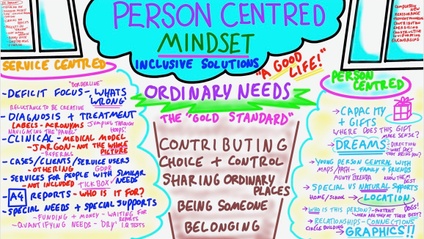 PERSON CENTRED
MINDSET
INCLUSIVE SOLUTIONS
"A GOOD
LIFE!"
SERVICE CENTRED
"BORDERLINE"
- DEFICIT FOCUS - WHATS
WRONG
RELUCTANCE TO BE CREATIVE
- DIAGNOSIS + TREATMENT
LABELS - ACRONYMS
JUMPING THROUGH
HOOPS!
NAVIGATING THE "PANEL"
- CLINICAL - MEDICAL MODEL
- JARGON - NOT THE WHOLE
PICTURE
- REFERRALS
- CASES/CLIENTS/SERVICE USERS
- OTHERING
- SERVICES FOR PEOPLE WITH SIMILAR
NEEDS
- NOT INCLUDED
TICK BOX
A4 REPORTS - WHO IS IT FOR?
- SPECIAL NEEDS + SPECIAL SUPPORTS
- FUNDING + MONEY - WAITING FOR
- QUANTIFYING NEEDS - "DRY" I.Q TESTS
ORDINARY NEEDS
THE "GOLD STANDARD"
CONTRIBUTING
CHOICE + CONTROL
SHARING ORDINARY
PLACES
BEING SOMEONE
BELONGING
PERSON
CENTRED
CAPACITY
+ GIFTS
WHERE DOES THIS GIFT
MAKE SENSE?
DREAMS
- DIRECTION
YOUNG PERSON CENTRED WITH
MAPS/PATH - FAMILY + FRIENDS
SPECIAL VS NATURAL SUPPORTS
HOME/SCHOOL - LOCATION
WHO IS THIS PERSON?
- RELATIONSHIPS - CONNECTIONS
CIRCLE BUILDING
GRAPHICS!!